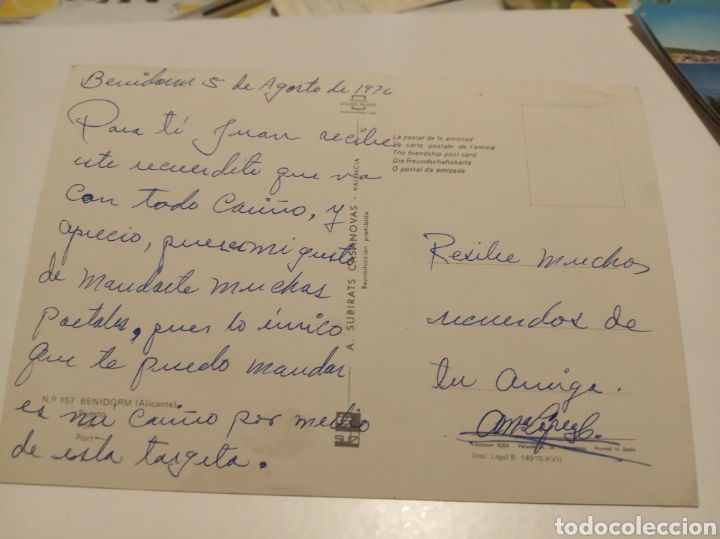 Benidorm 5 de Agosto de 1976
Para ti Juan recibe
este recuerdito que va
con todo cariño, y
aprecio, pues mi gusto
de mandarte muchas
postales, pues lo único
que te puedo mandar
es mi cariño por medio
de esta targeta.
La postal de la amistad
La carte postale de l'amitié
The friendship post card
Die freundschaftskarte
O postal da amizade
A. SUBIRATS CASANOVAS - VALENCIA
Reproducción prohibida
Resibe muchos
recuerdos de
tu amiga.
Ana López
N.º 157 BENIDORM (Alicante)
Port
Dep. Legal B. 14910-XVII
Printed in Spain
todocoleccion